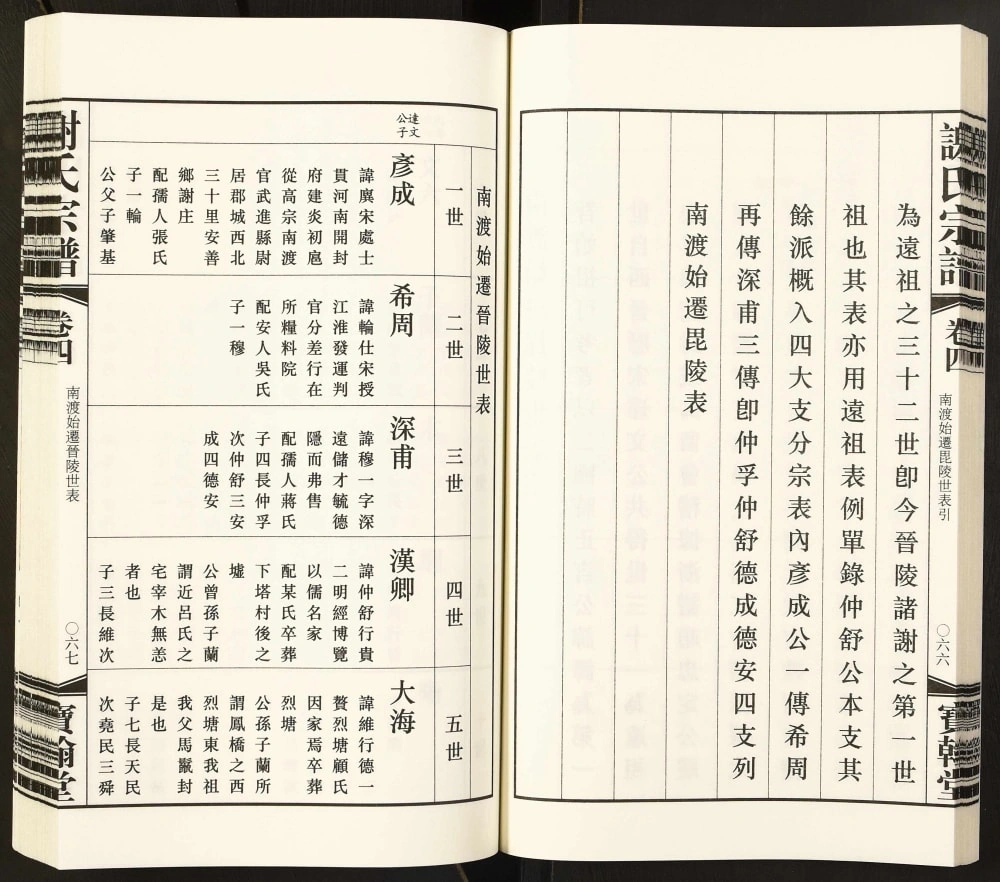 謝氏宗譜
卷四
南渡始遷毘陵世表引
〇六六
寶翰堂
為遠祖之三十二世卽今晉陵諸謝之第一世
祖也其表亦用遠祖表例單錄仲舒公本支其
餘派概入四大支分宗表內彥成公一傳希周
再傳深甫三傳卽仲孚仲舒德成德安四支列
南渡始遷毘陵表
南渡始遷晉陵世表
一世
二世
三世
四世
五世
達文
公子
彥成
諱廙宋處士
貫河南開封
府建炎初扈
從高宗南渡
官武進縣尉
居郡城西北
三十里安善
鄉謝庄
配孺人張氏
子一輪
公父子肇基
希周
諱輪仕宋授
江淮發運判
官分差行在
所糧料院
配安人吳氏
子一穆
深甫
諱穆一字深
遠儲才毓德
隱而弗售
配孺人蔣氏
子四長仲孚
次仲舒三安
成四德安
漢卿
諱仲舒行貴
二明經博覽
以儒名家
配某氏卒葬
下塔村後之
墟
公曾孫子蘭
謂近呂氏之
宅宰木無恙
者也
子三長維次
大海
諱維行德一
贅烈塘顧氏
因家焉卒葬
烈塘
公孫子蘭所
謂鳳橋之西
烈塘東我祖
我父馬鬣封
是也
子七長天民
次堯民三舜
謝氏宗譜
卷四
南渡始遷晉陵世表
〇六七
寶翰堂